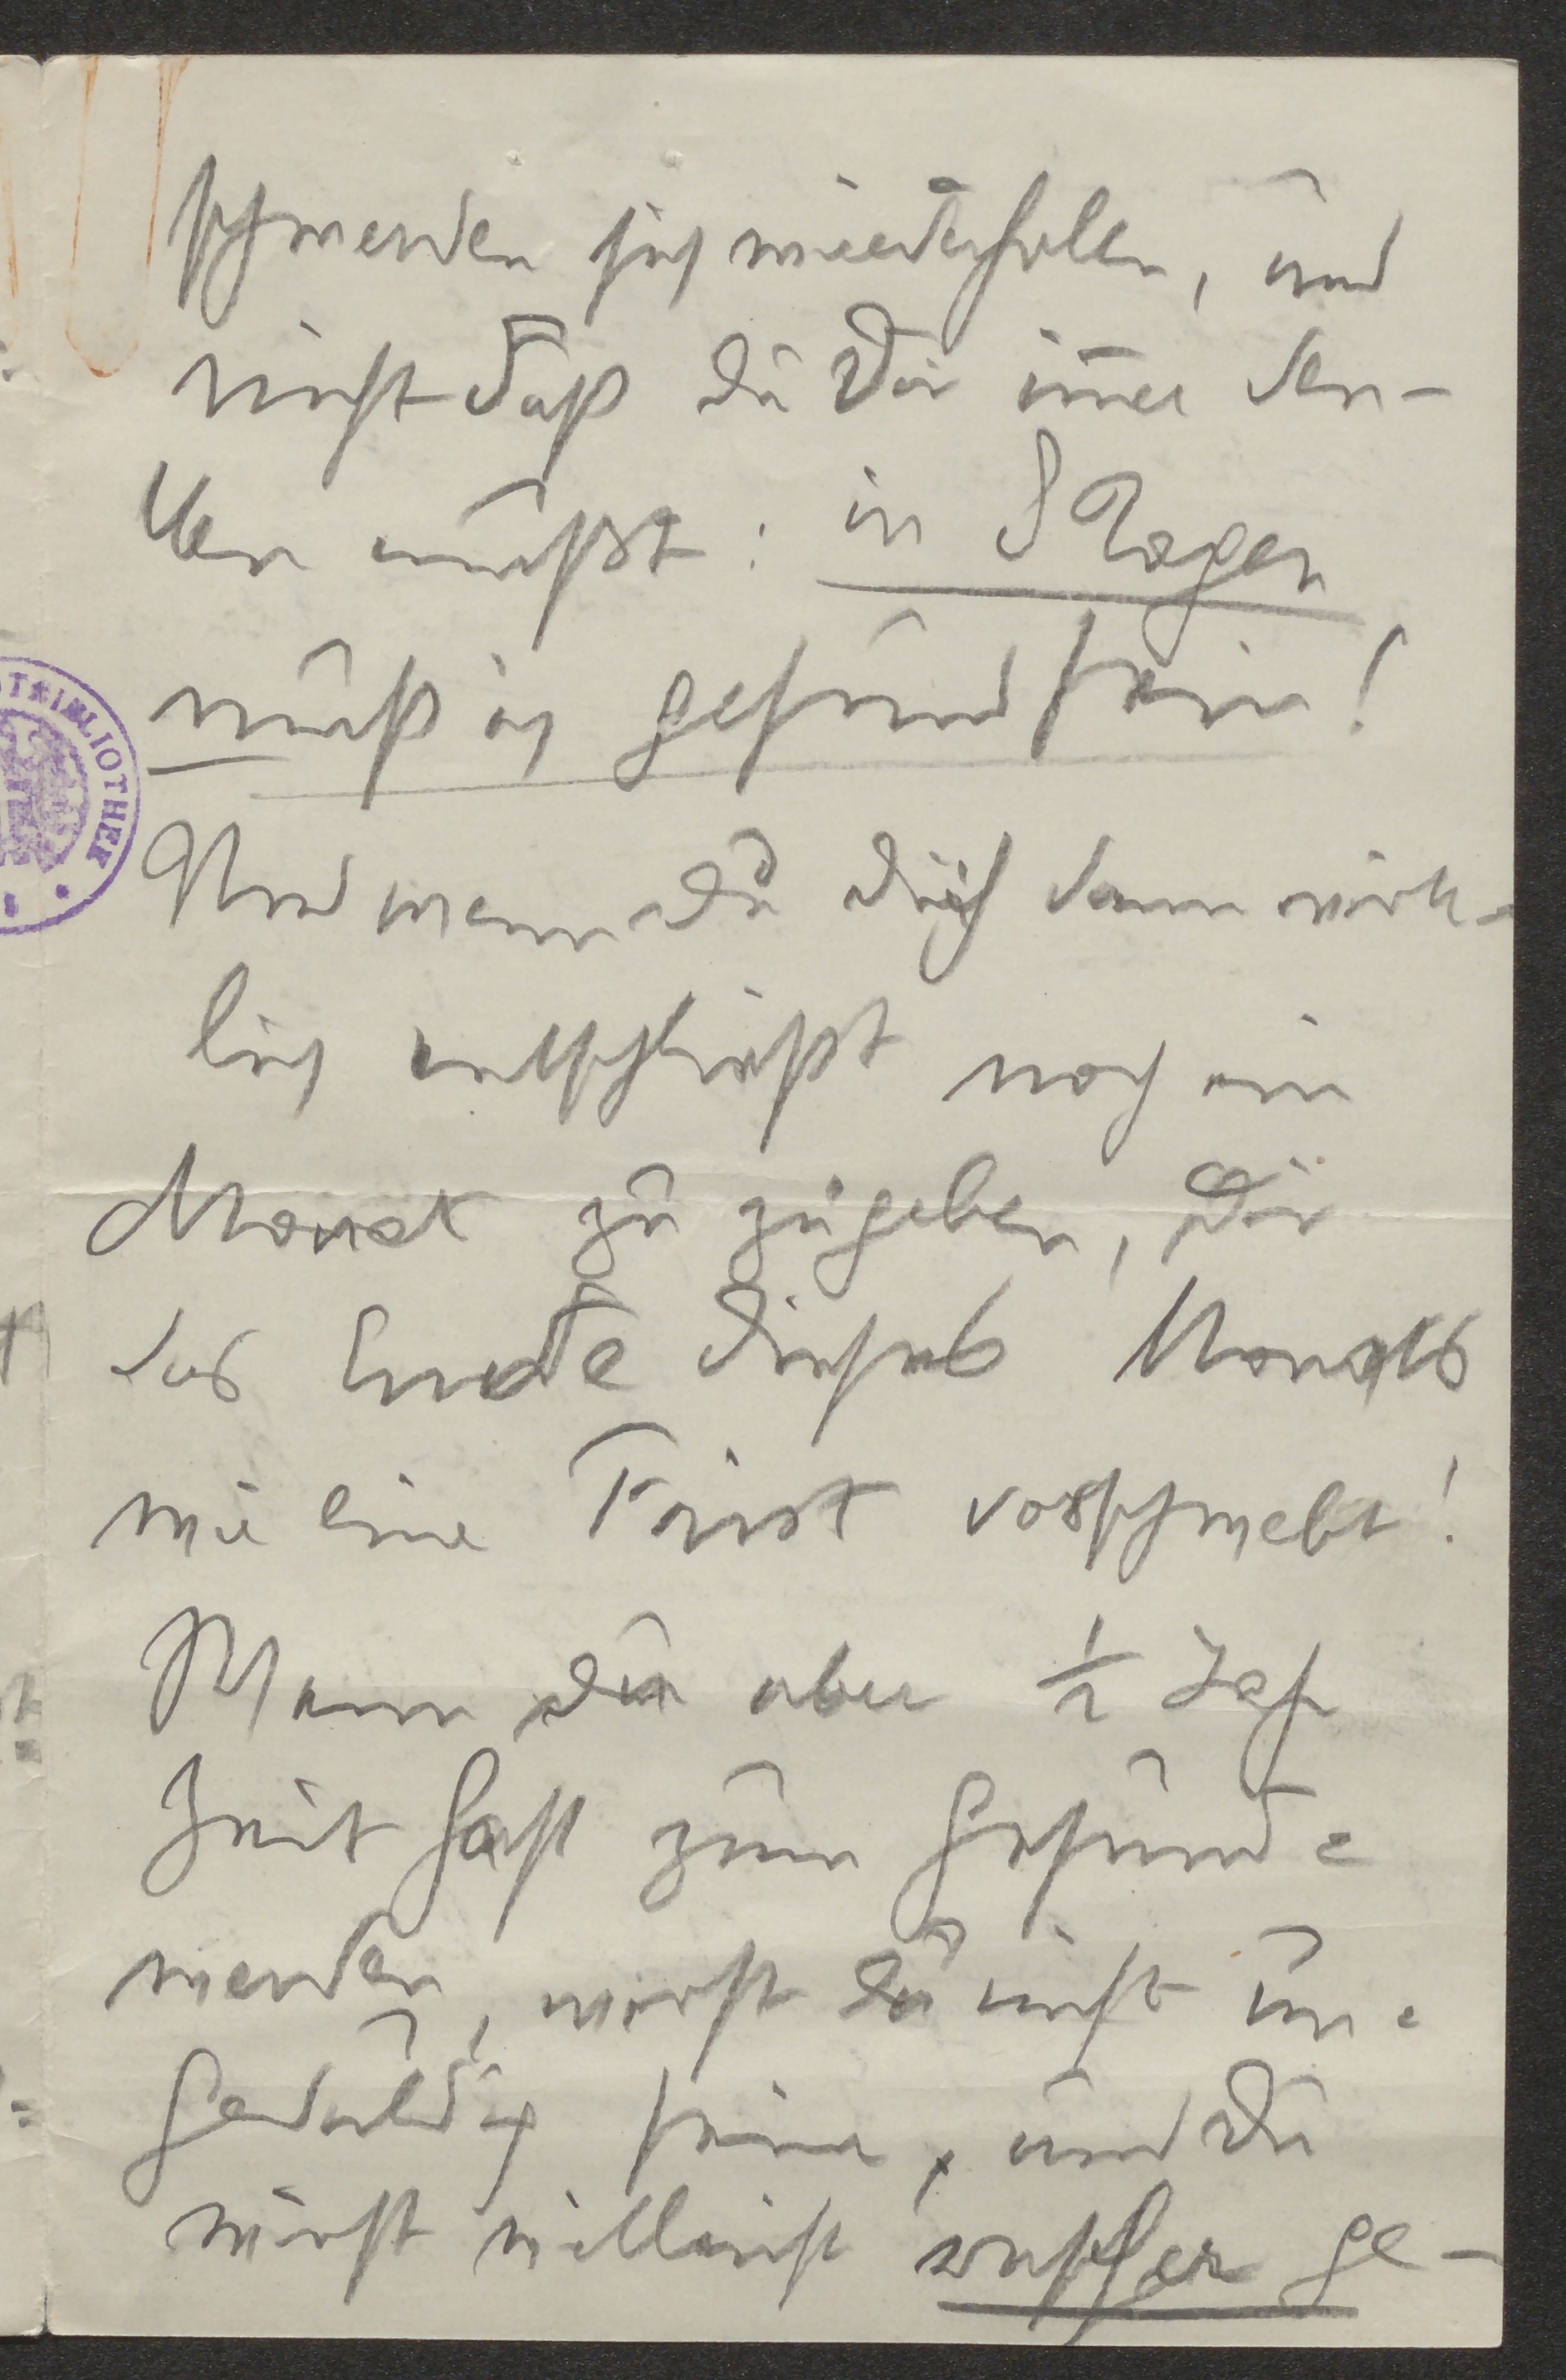 schwerden sich wiederholen, und
nicht daß du Dir immer den-
ken mußt: in 8 Tagen
muß ich gesund sein!
Und wenn Du dich dann wirk-
lich entschließt noch ein
Monat zu zugeben, Dir
das Ende dieses Monats
wie eine Frist vorschwebt!
Wenn Du aber ½ Jahr
Zeit hast zum Gesund=
werden, wirst du nicht un=
geduldig sein, und Du
wirst vielleicht rascher ge-
BIBLIOTHEK